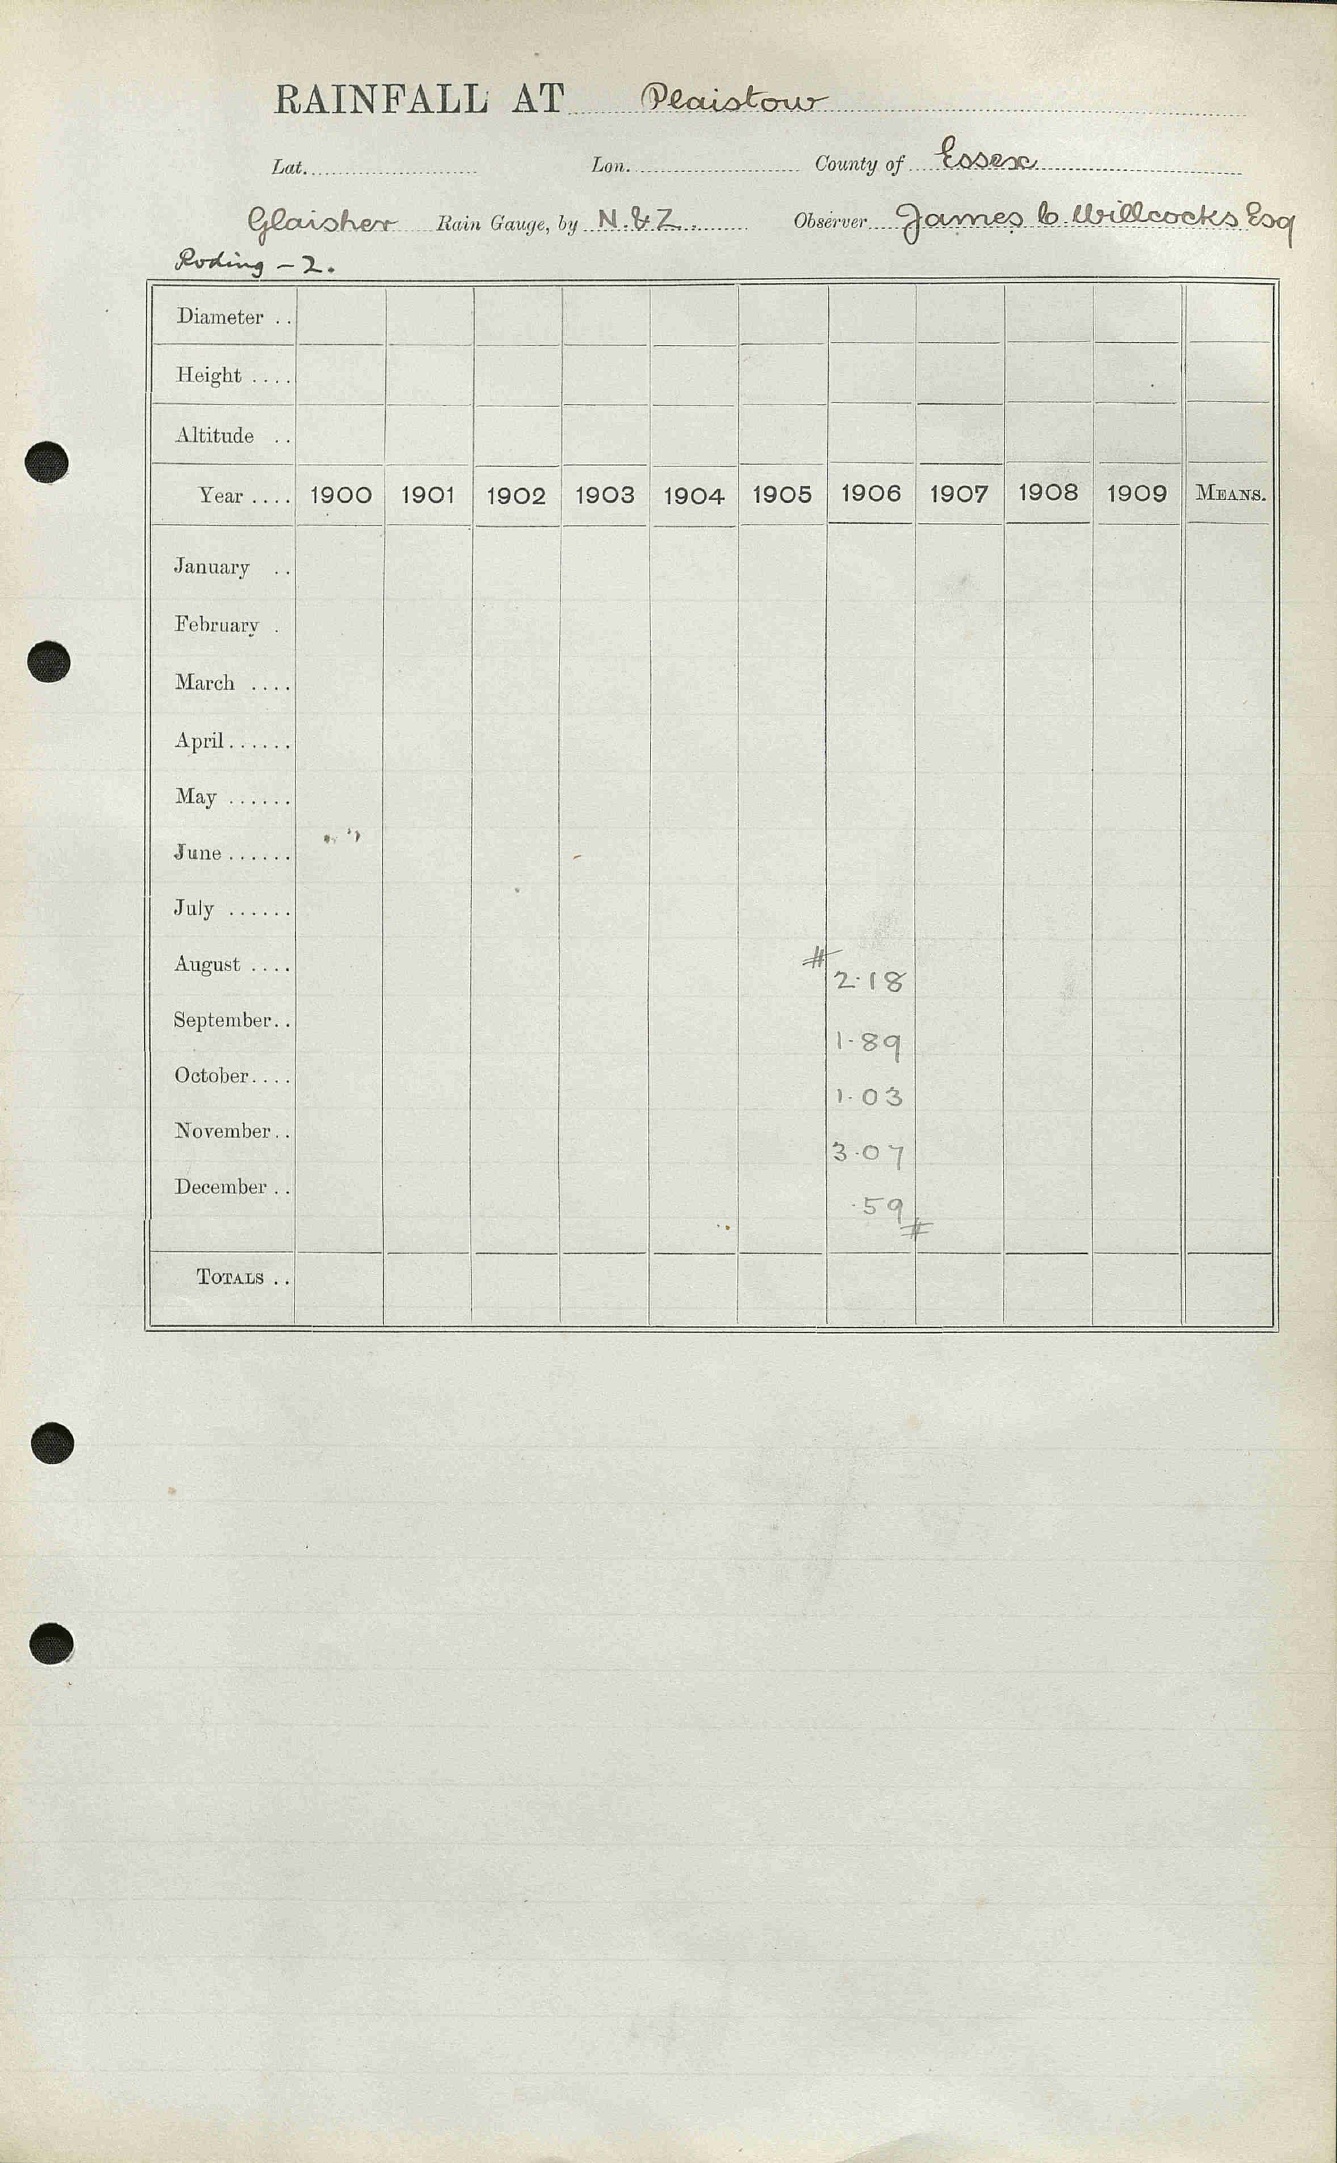 RAINFALL AT Plaistow
Lat. Lon. County of Essex
Glaisher Rain Gauge, by N. & Z. Observer James C. Willcocks Esq
Roding - 2.
Diameter ..
Height ....
Altitude ..
Year .... 1900 1901 1902 1903 1904 1905 1906 1907 1908 1909 MEANS.
January ..
February .
March ....
April ......
May ......
June ......
July ......
August .... # 2.18
September.. 1.89
October.... 1.03
November.. 3.07
December .. .59 #
TOTALS ..